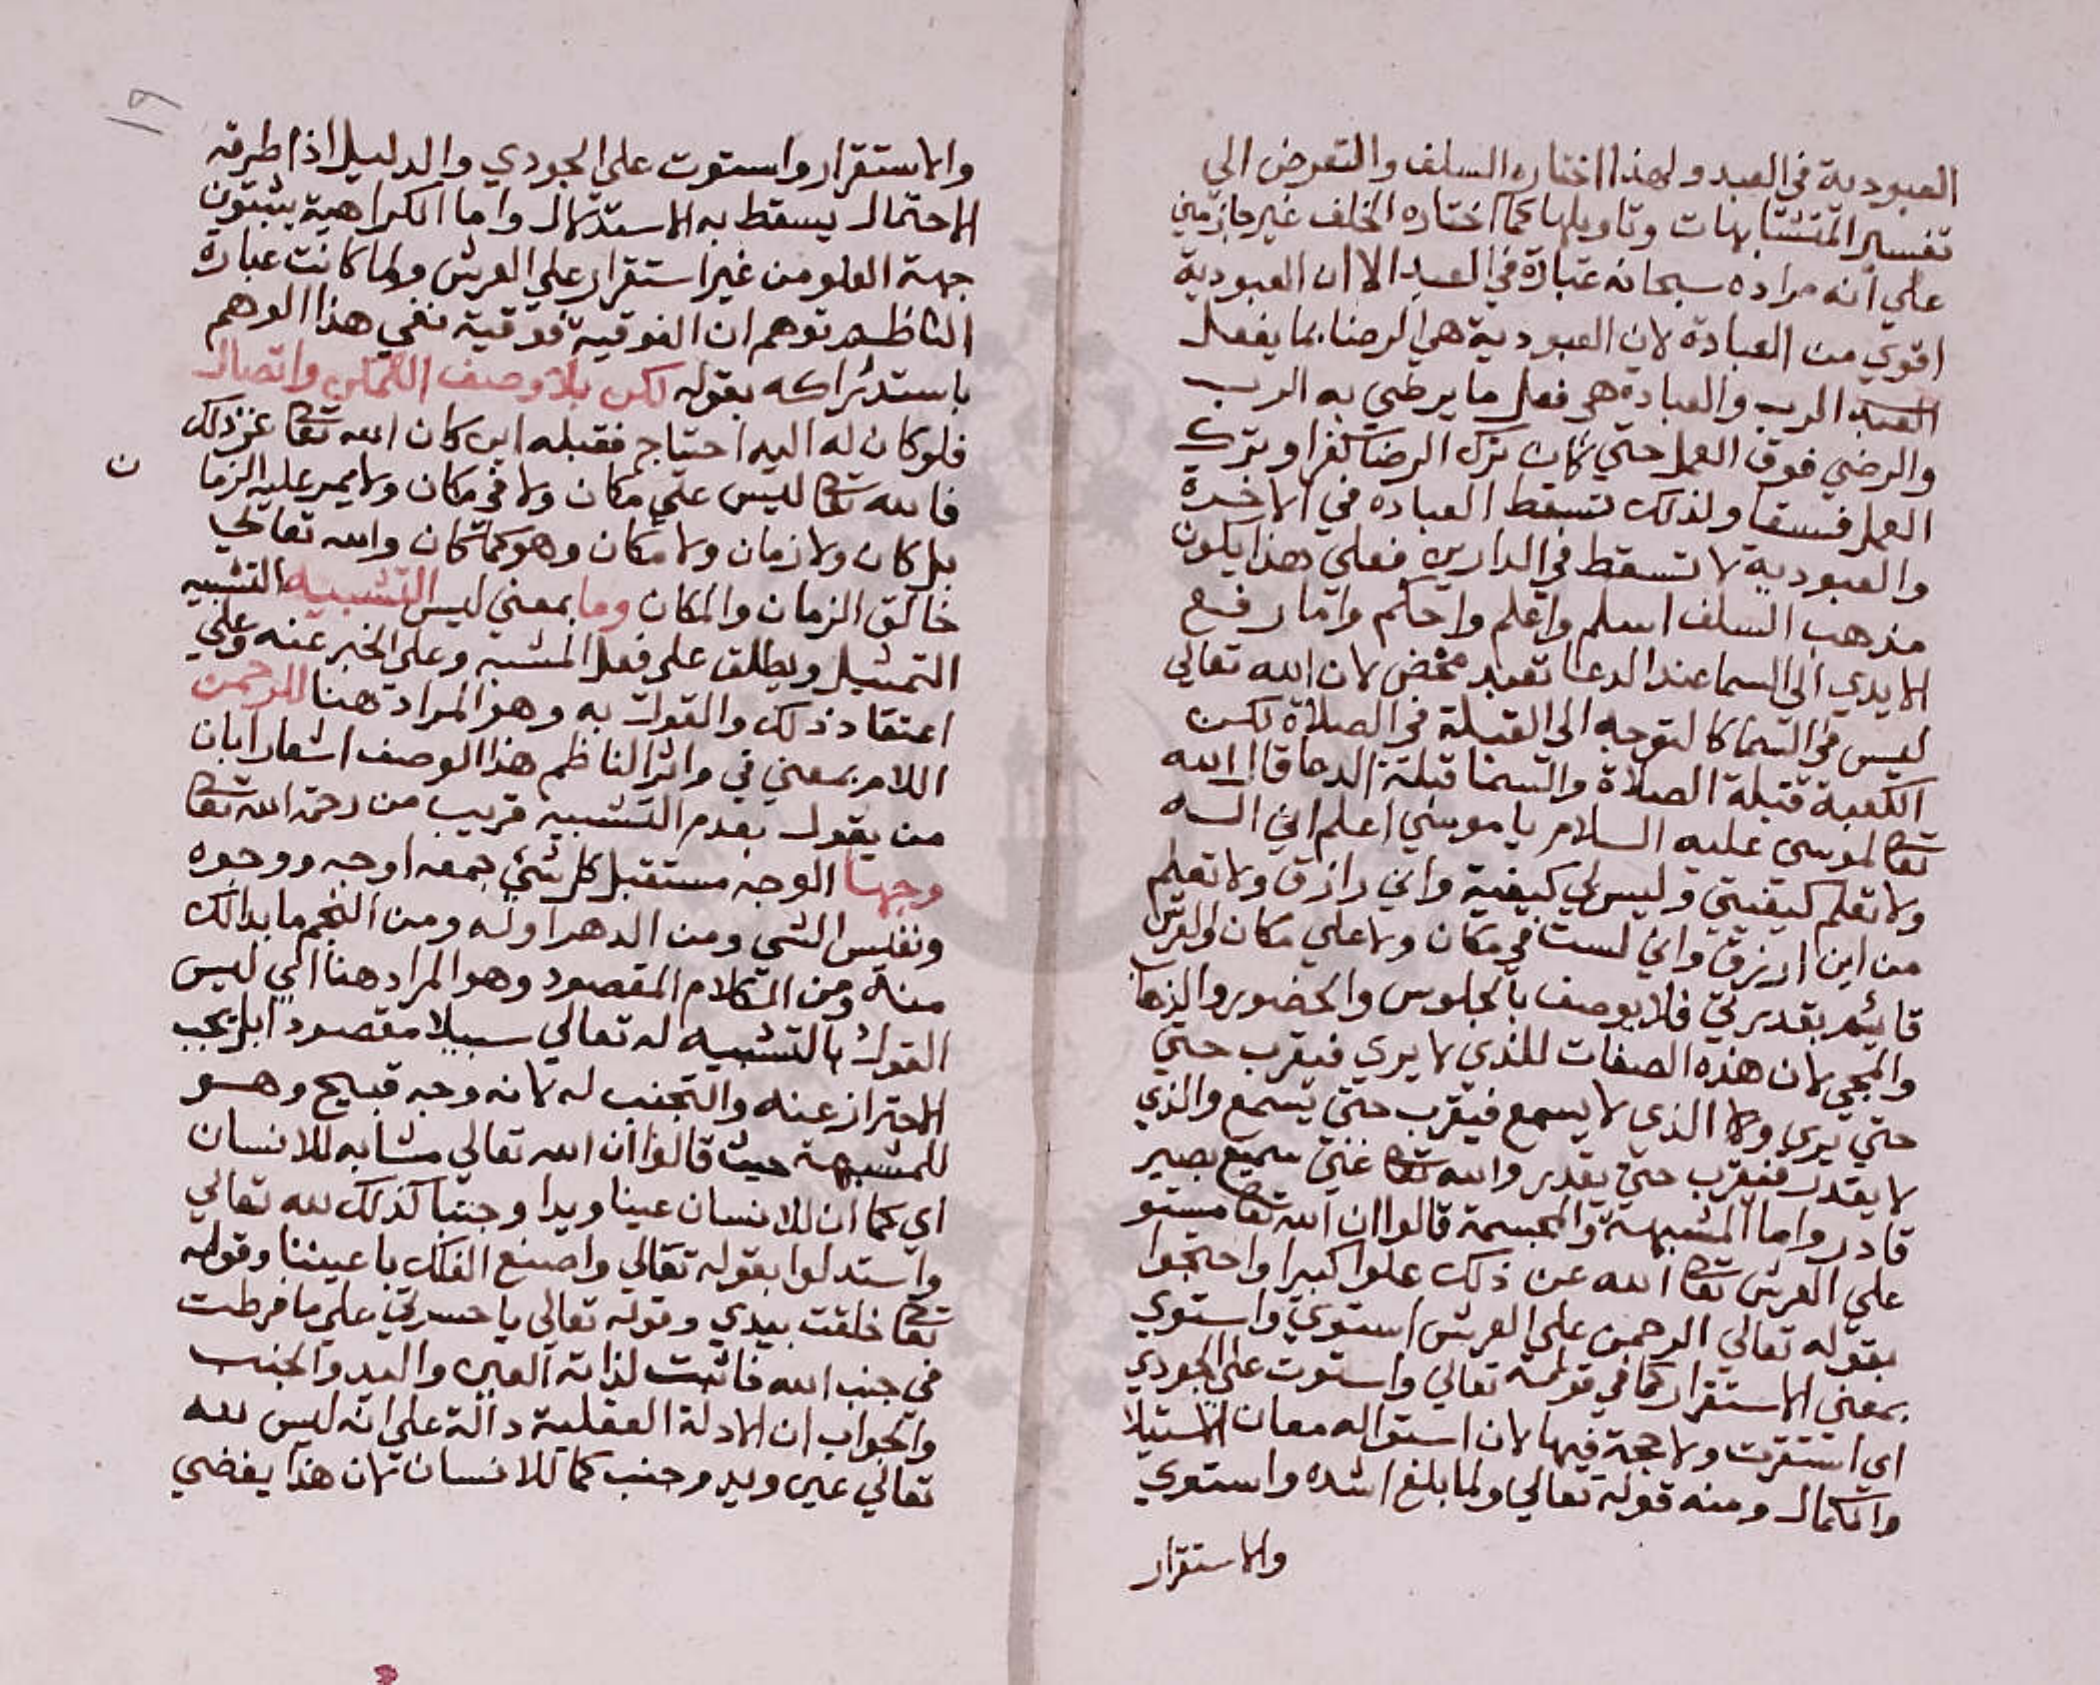 العبودية في العبد ولهذا اختاره السلف والتعرض الي
تفسير المتشابهات وتاويلها كما اختاره الخلف غير جازمين
علي انه مراده سبحانه عبادة في العبد الا ان العبودية
اقوي من العبادة لان العبودية هي الرضا بما يفعل
الرب والعبادة هو فعل ما يرضي به الرب
والرضي فوق العمل حتي كان ترك الرضا كفرا وترك
العمل فسقا ولذلك تسقط العباده في الاخرة
والعبودية لا تسقط في الدارين فعلي هذا يكون
مذهب السلف اسلم واعلم واحكم واما رفع
الايدي الي السما عند الدعا تعبد محض لان الله تعالي
ليس في السما كالتوجه الي القبلة في الصلاة لكن
الكعبة قبلة الصلاة والسما قبلة الدعا قال الله
تعا لموسي عليه السلام يا موسي اعلم اني اله
ولا تعلم كيفيتي وليس لي كيفية واني رازق ولا تعلم
من اين ارزق واني لست في مكان ولا علي مكان والعرش
قائم بقدرتي فلا يوصف بالجلوس والحضور والذهاب
والمجي لان هذه الصفات للذي لا يري فيقرب حتي
حتي يري ولا الذي لا يسمع فيقرب حتي يسمع والذي
لا يقدر فيقرب حتي يقدر والله تعا غني سميع بصير
قادر واما المشبهة والمجسمة قالوا ان الله تعا مستو
علي العرش تعا الله عن ذلك علوا كبيرا واحتجوا
بقوله تعالي الرحمن علي العرش استوي واستوي
بمعني الاستقرار كما في قوله تعالي واستوت علي الجودي
اي استقرت ولا حجة فيها لان استوا له معان الاستيلا
والكمال ومنه قوله تعالي ولما بلغ اشده واستوي
والاستقرار
١٩
والاستقرار واستوت علي الجودي والدليل اذا طرقه
الاحتمال يسقط به الاستدلال واما الكراهية يثبتون
جهة العلو من غير استقرار علي العرش ولما كانت عبارة
الناظم توهم ان الفوقية فوقية نفي هذا الوهم
باستدراكه بقوله لكن بلا وصف التمكن واتصال
فلو كان له اليه احتياج فقبله اين كان الله تعا عن ذلك
فالله تعا ليس علي مكان ولا في مكان ولا يمر عليه الزما
ن
بل كان ولا زمان ولا مكان وهو كما كان والله تعالي
خالق الزمان والمكان وما بمعني ليس التشبيه التشبيه
التمثيل ويطلق علي فعل المشبه وعلي الخبر عنه وعلي
اعتقاد ذلك والقول به وهو المراد هنا للرحمن
اللام بمعني في واثر الناظم هذا الوصف اشعارا بان
من يقول بعدم التشبيه قريب من رحمة الله تعا
وجها الوجه مستقبل كل شي جمعه اوجه ووجوه
ونفس الشي ومن الدهر اوله ومن النجم ما بدا لك
منه ومن الكلام المقصود وهو المراد هنا اي ليس
القول بالتشبيه له تعالي سبيلا مقصودا بل يجب
الاحتراز عنه والتجنب له لانه وجه قبيح وهو
للمشبهة حيث قالوا ان الله تعالي مشابه للانسان
اي كما ان للانسان عينا ويدا وجنبا كذلك لله تعالي
واستدلوا بقوله تعالي واصنع الفلك باعيننا وقوله
تعا خلقت بيدي وقوله تعالي يا حسرتي علي ما فرطت
في جنب الله فاثبت لذاته العين واليد والجنب
والجواب ان الادلة العقلية دالة علي انه ليس لله
تعالي عين ويد وجنب كما للانسان لان هذا يفضي